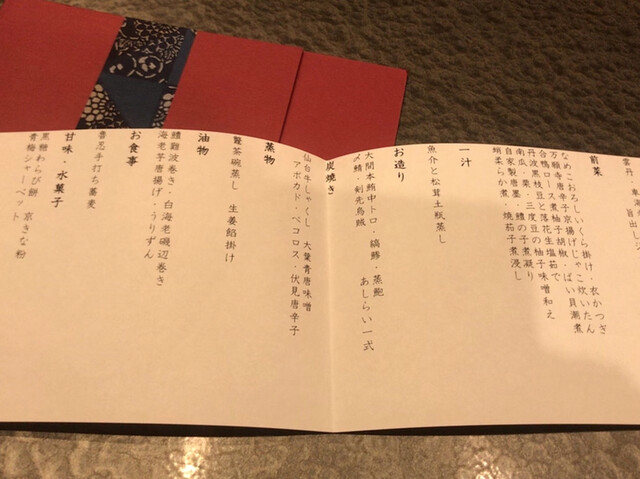 雲丹・車海
旨出しジ
前菜
なめこおろしいくら掛け 衣かつぎ
万願寺唐辛子京揚げじゃこ炊いたん
合鴨ロース煮柚子胡椒・ばい貝潮煮
丹波黒枝豆と落花生塩茹で
南瓜・栗・三度豆の柚子味噌和え
自家製唐墨・鱧の子煮凝り
蛸柔らか煮・焼茄子煮浸し
一汁
魚介と松茸土瓶蒸し
お造り
大間本鮪中トロ・縞鯵・蒸鮑
〆鯖・剣先烏賊 あしらい一式
炭焼き
仙台牛しゃくし 大葉青唐味噌
アボカド・ペコロス・伏見唐辛子
蒸物
鼈茶碗蒸し 生姜餡掛け
油物
鱧難波巻き・白海老磯辺巻き
海老芋唐揚げ・うりずん
お食事
善忍手打ち蕎麦
甘味・水菓子
黒糖わらび餅 京きな粉
青梅シャーベット